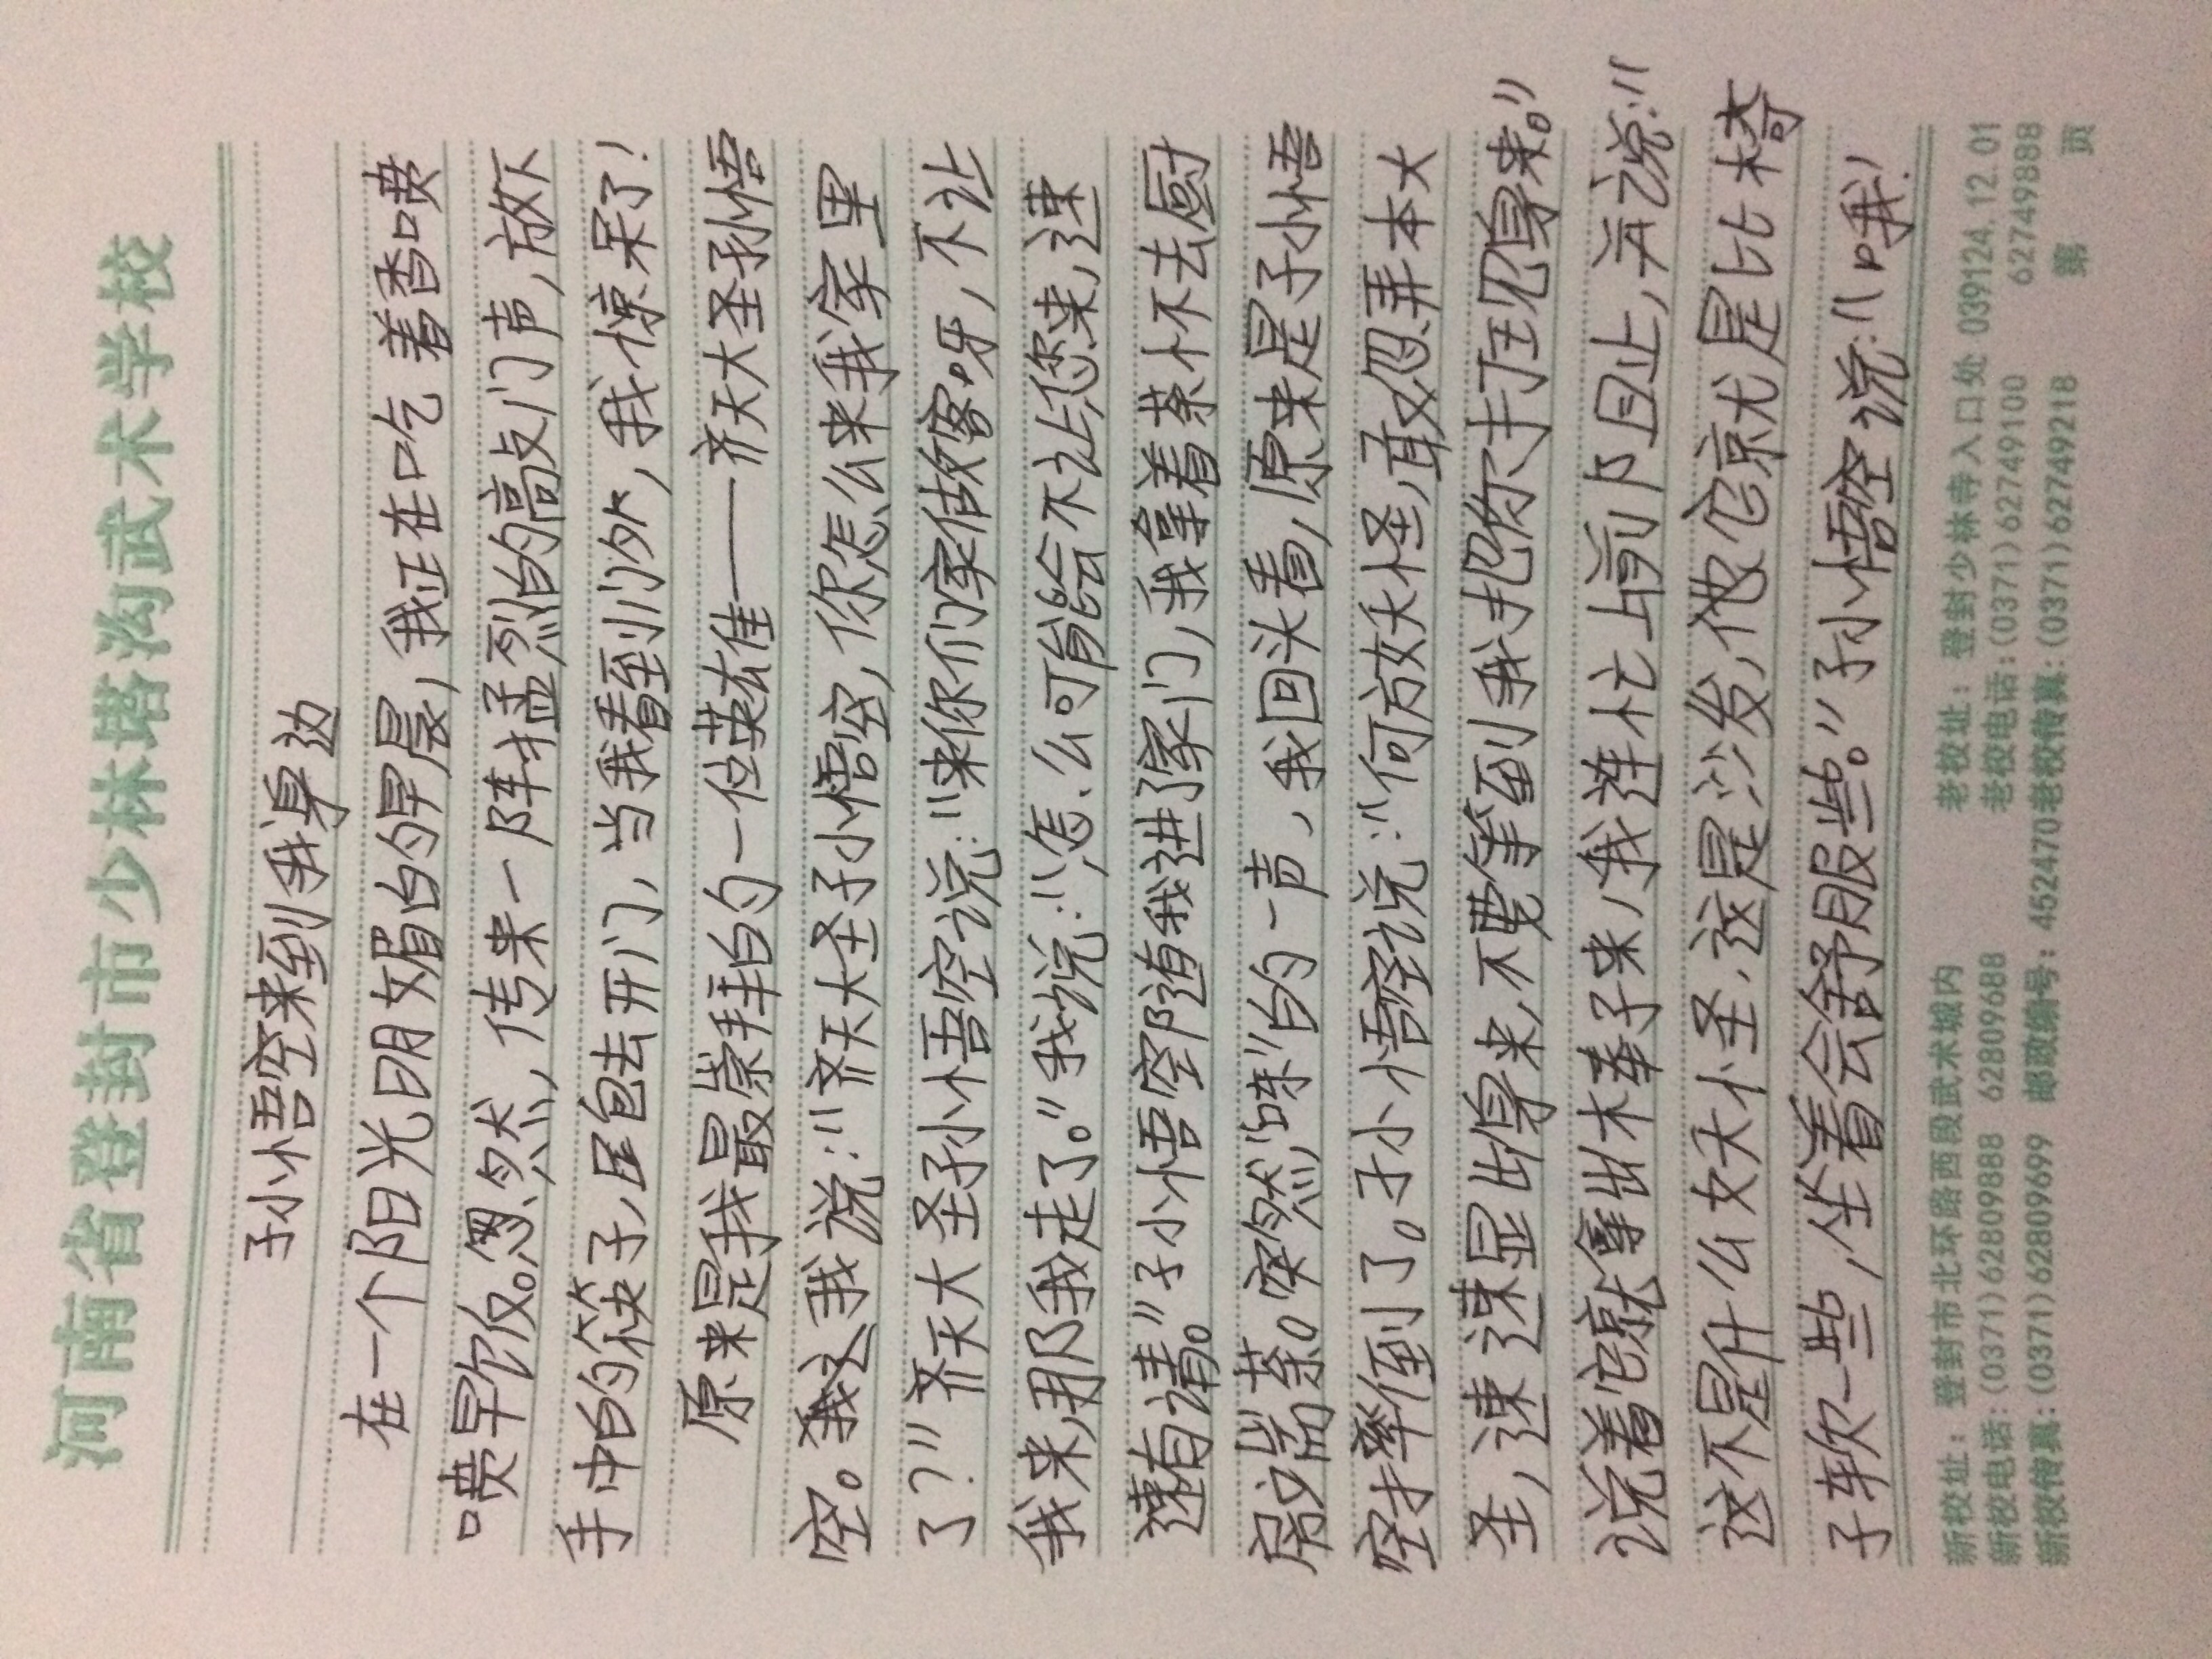 河南省登封市少林塔沟武术学校
孙悟空来到我身边
在一个阳光明媚的早晨，我正在吃着香喷
喷早饭。忽然，传来一阵猛烈的高敲门声，放下
手中的筷子，跑去开门，当我看到门外，我惊呆了！
原来是我最崇拜的一位英雄——齐天大圣孙悟
空。我说："齐天大圣孙悟空，你怎么来我家里
了？"齐天大圣孙悟空说："来你们家做客呀，不让
我来，那我走了。"我说："怎么可能会不让您来，速
速有请。"孙悟空随我进了家门，我拿着茶杯去厨
房端茶。突然，"咪"的一声，我回头看，原来是孙悟
空摔倒了。孙悟空说："何方妖怪，敢忽弄本大
圣，速速显出身来，不要等到我把你打出现身来。"
说着它就拿出木棒子来，我连忙上前阻止，并说："
这不是什么妖怪，这是沙发，他它就是比椅
子软一些，坐着会舒服些。"孙悟空说："哦！
新校址：登封市北环路西段武术城内 老校址：登封少林寺入口处 039124.12.01
新校电话：(0371)62809888 62809688 老校电话：(0371)62749100 62749888
新校传真：(0371)62809699 邮政编号：452470 老校传真：(0371)62749218 第 页